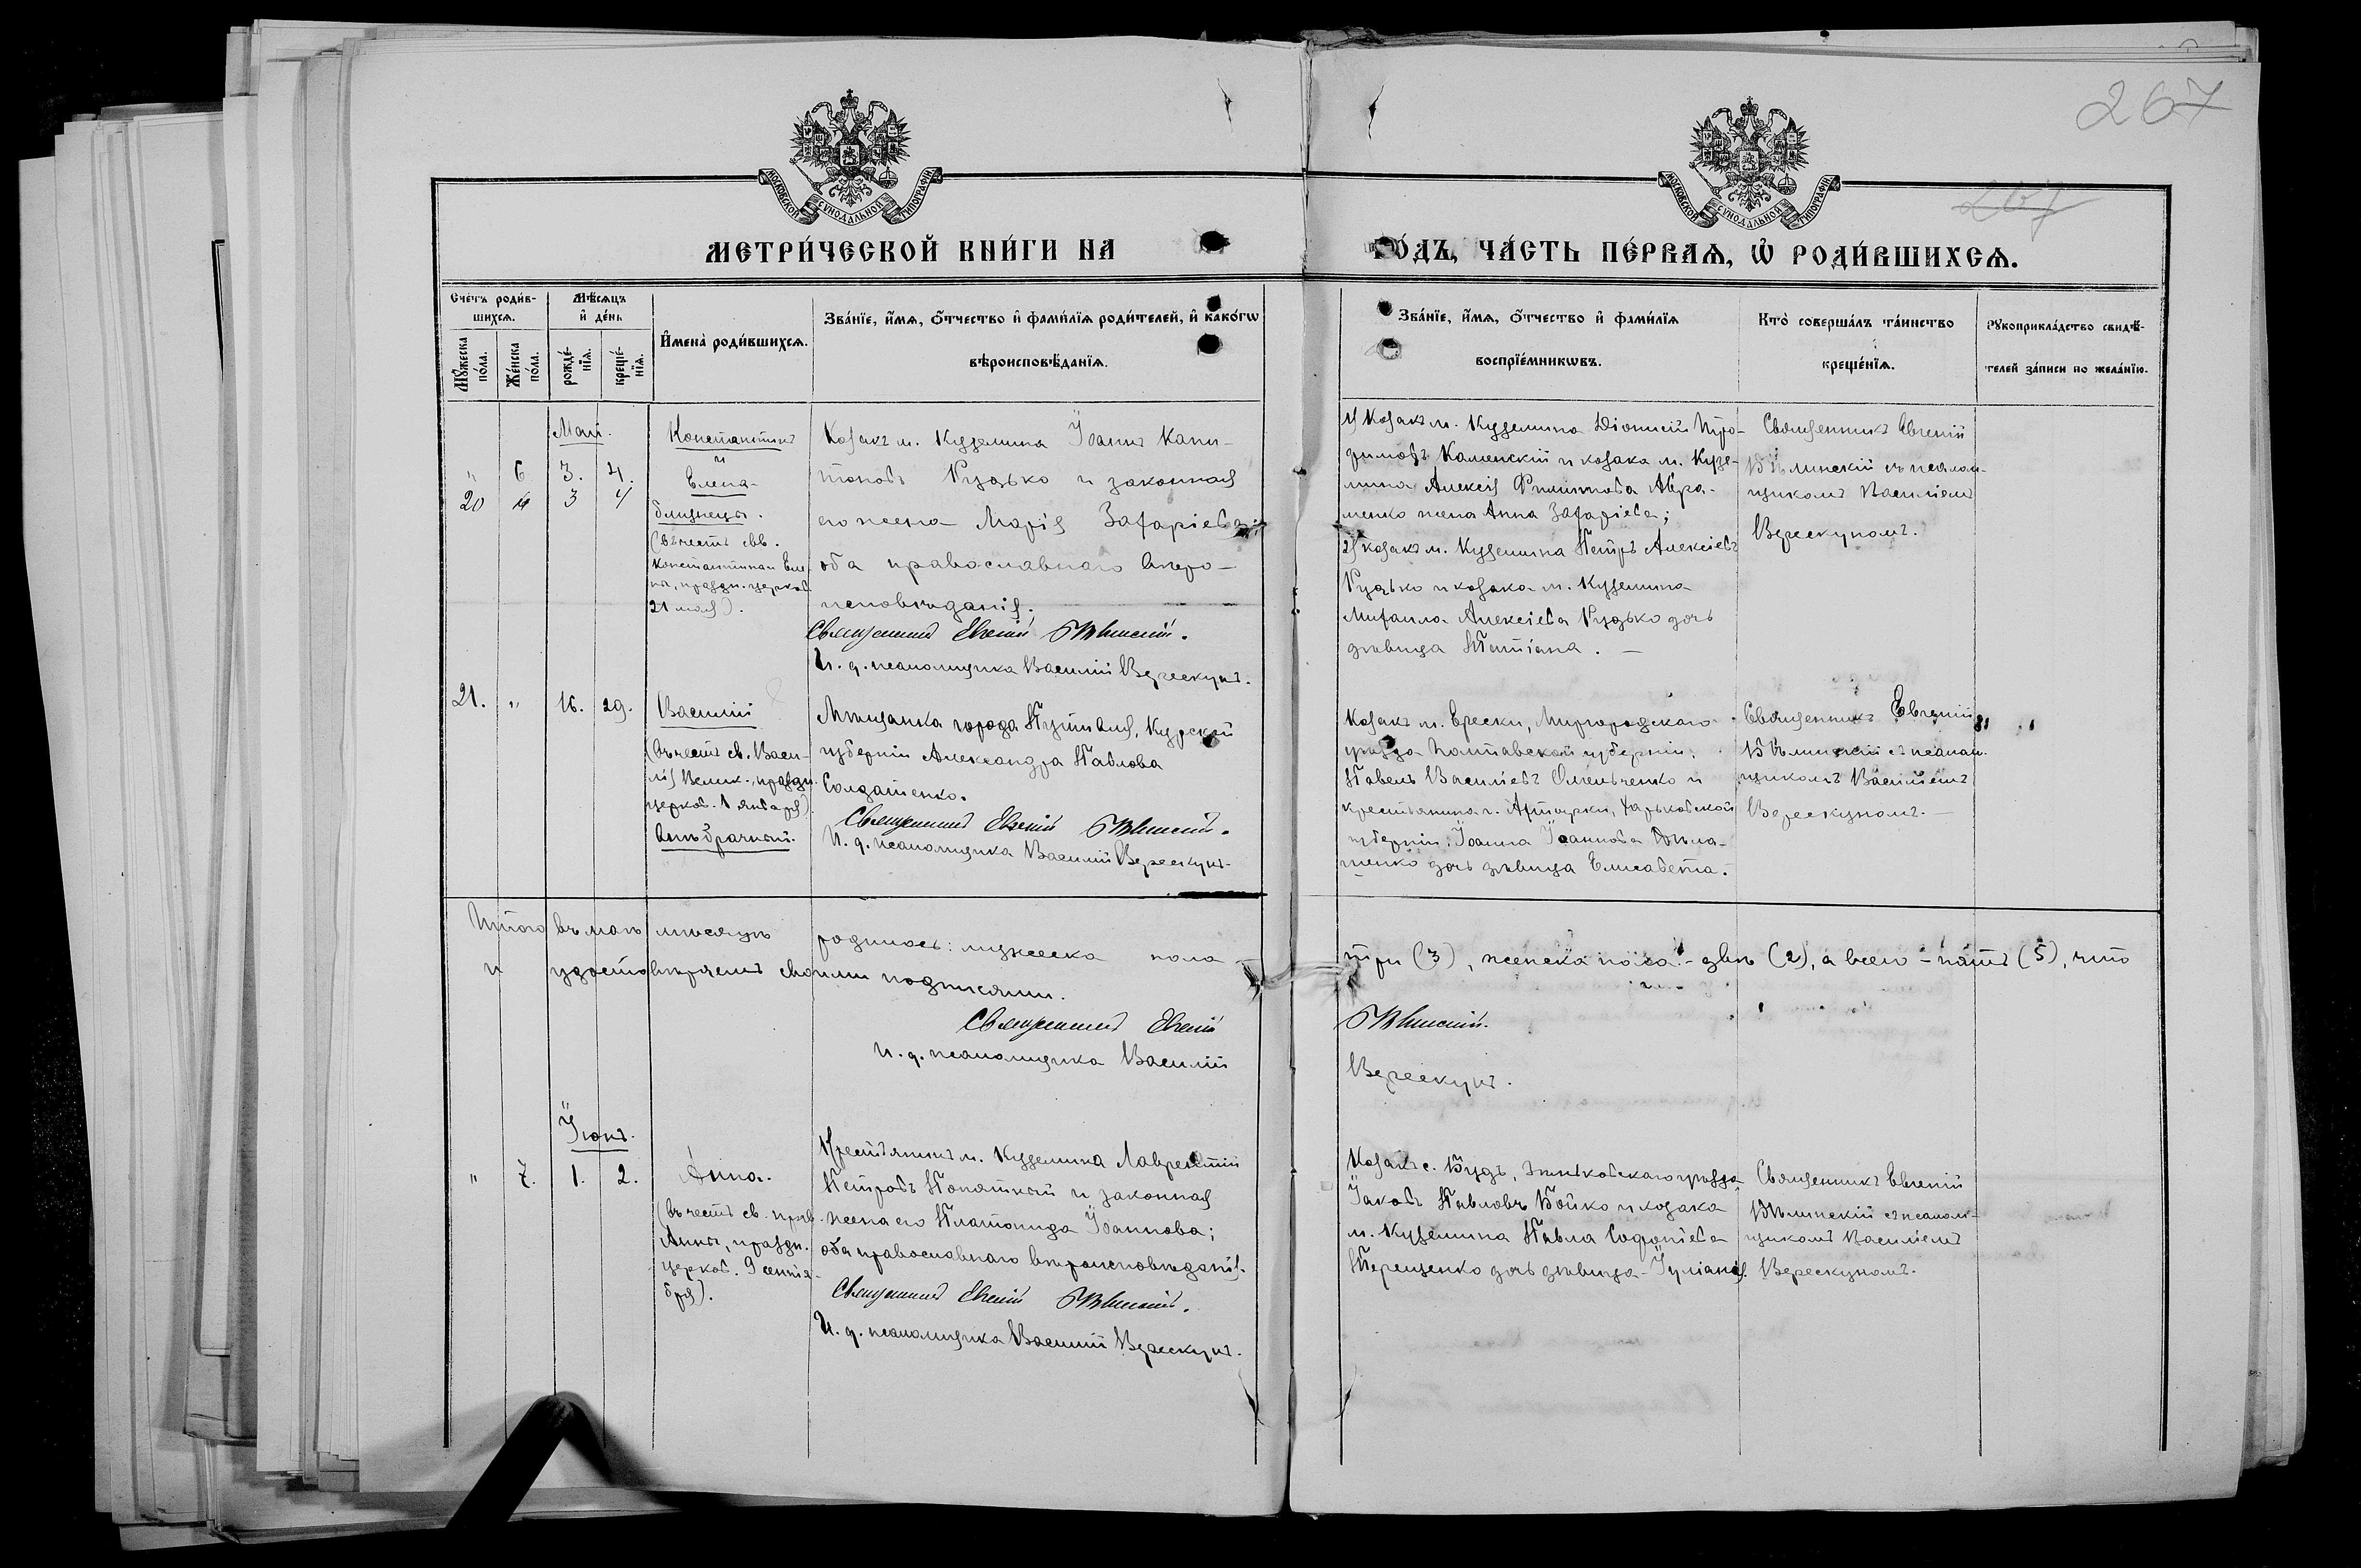 267
267
МОСКОВСКОЙ СУНОДАЛЬНОЙ ТИПОГРАФІИ
МОСКОВСКОЙ СУНОДАЛЬНОЙ ТИПОГРАФІИ
МЕТРИ́ЧЕСКОЙ КНИ́ГИ НА
ГО́ДЪ, ЧА́СТЬ ПЕ́РВАѦ, Ѡ РОДИ́ВШИХСѦ.
Сче́тъ роди́в-
шихсѧ.
Му́жеска
по́ла.
Же́нска
по́ла.
Мѣ́сѧцъ
и҆ де́нь
рожде́-
нїѧ.
креще́-
нїѧ.
И҆мена̀ роди́вшихсѧ.
Зва́нїе, и҆́мѧ, ѻ҆́тчество и҆ фами́лїѧ роди́телей, и҆ како́гѡ
вѣроисповѣ́данїѧ.
Зва́нїе, и҆́мѧ, ѻ҆́тчество и҆ фами́лїѧ
воспрїе́мникѡвъ.
Кто̀ соверша́лъ та́инство
креще́нїѧ.
Рꙋкоприкла́дство свидѣ́-
телей за́писи по жела́нїю.
Май.
" 6 3. 4.
20 " 3 4
Константинъ
и
Елена-
близнецы.
(въ честь свв.
Константина и Еле-
ны, праздн. церков.
21 мая).
Козакъ м. Куземина Іоаннъ Капи-
тоновъ Рудько и законная
его жена Марія Захаріева;
оба православнаго вѣро-
исповѣданія.
Священникъ Евгеній Бѣлинскій.
И. д. псаломщика Василій Верескунъ.
1) Козакъ м. Куземина Діонисій Тро-
фимовъ Каменскій и козака м. Кузе-
мина Алексія Филиппова Авра-
менко жена Анна Захаріева;
2) козакъ м. Куземина Петръ Алексіевъ
Рудько и козака м. Куземина
Михаила Алексіева Рудько дочь
дѣвица Татіана. —
Священникъ Евгеній
Бѣлинскій съ псалом-
щикомъ Василіемъ
Верескуномъ.
21. " 16. 29.
Василій
(въ честь св. Васи-
лія Велик., праздн.
церков. 1 января)
внѣбрачный.
Мѣщанка города Путивля, Курской
губерніи Александра Павлова
Солдатенко.
Священникъ Евгеній Бѣлинскій.
И. д. псаломщика Василій Верескунъ.
Козакъ м. Ерески, Миргородскаго
уѣзда Полтавской губерніи,
Павелъ Василіевъ Омельченко и
крестьянина г. Ахтырки, Харьковской
губерніи, Іоанна Іоаннова
дочь дѣвица Елисавета.
Священникъ Евгеній
Бѣлинскій съ псалом-
щикомъ Василіемъ
Верескуномъ. —
Итого въ маѣ мѣсяцѣ родилось: мужеска пола —
три (3), женска пола - двѣ (2), а всего - пять (5), что
и удостовѣряемъ своими подписями.
Священникъ Евгеній
Бѣлинскій.
И. д. псаломщика Василій
Верескунъ.
Іюнь.
" 7. 1. 2.
Анна.
(въ честь св. прав.
Анны, праздн.
церков. 9 сентя-
бря).
Крестьянинъ м. Куземина Лаврентій
Петровъ Попятный и законная
жена его Платонида Іоаннова;
оба православнаго вѣроисповѣданія.
Священникъ Евгеній Бѣлинскій.
И. д. псаломщика Василій Верескунъ.
Козакъ с. Будъ, Зиньковскаго уѣзда
Іаковъ Павловъ Бойко и козака
м. Куземина Павла Софоніева
Терещенко дочь дѣвица - Іуліанія.
Священникъ Евгеній
Бѣлинскій съ псалом-
щикомъ Василіемъ
Верескуномъ.